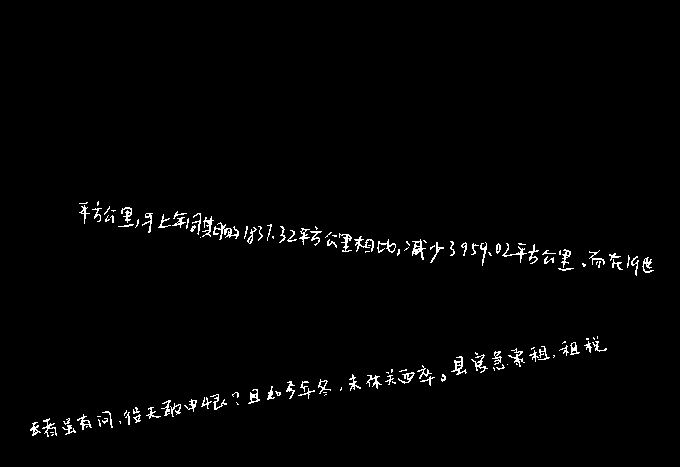 平方公里,与上年同期的1837.32平方公里相比,减少3959.02平方公里。而在19世
长者虽有问,役夫敢申恨?且如今年冬,未休关西卒。县官急索租,租税